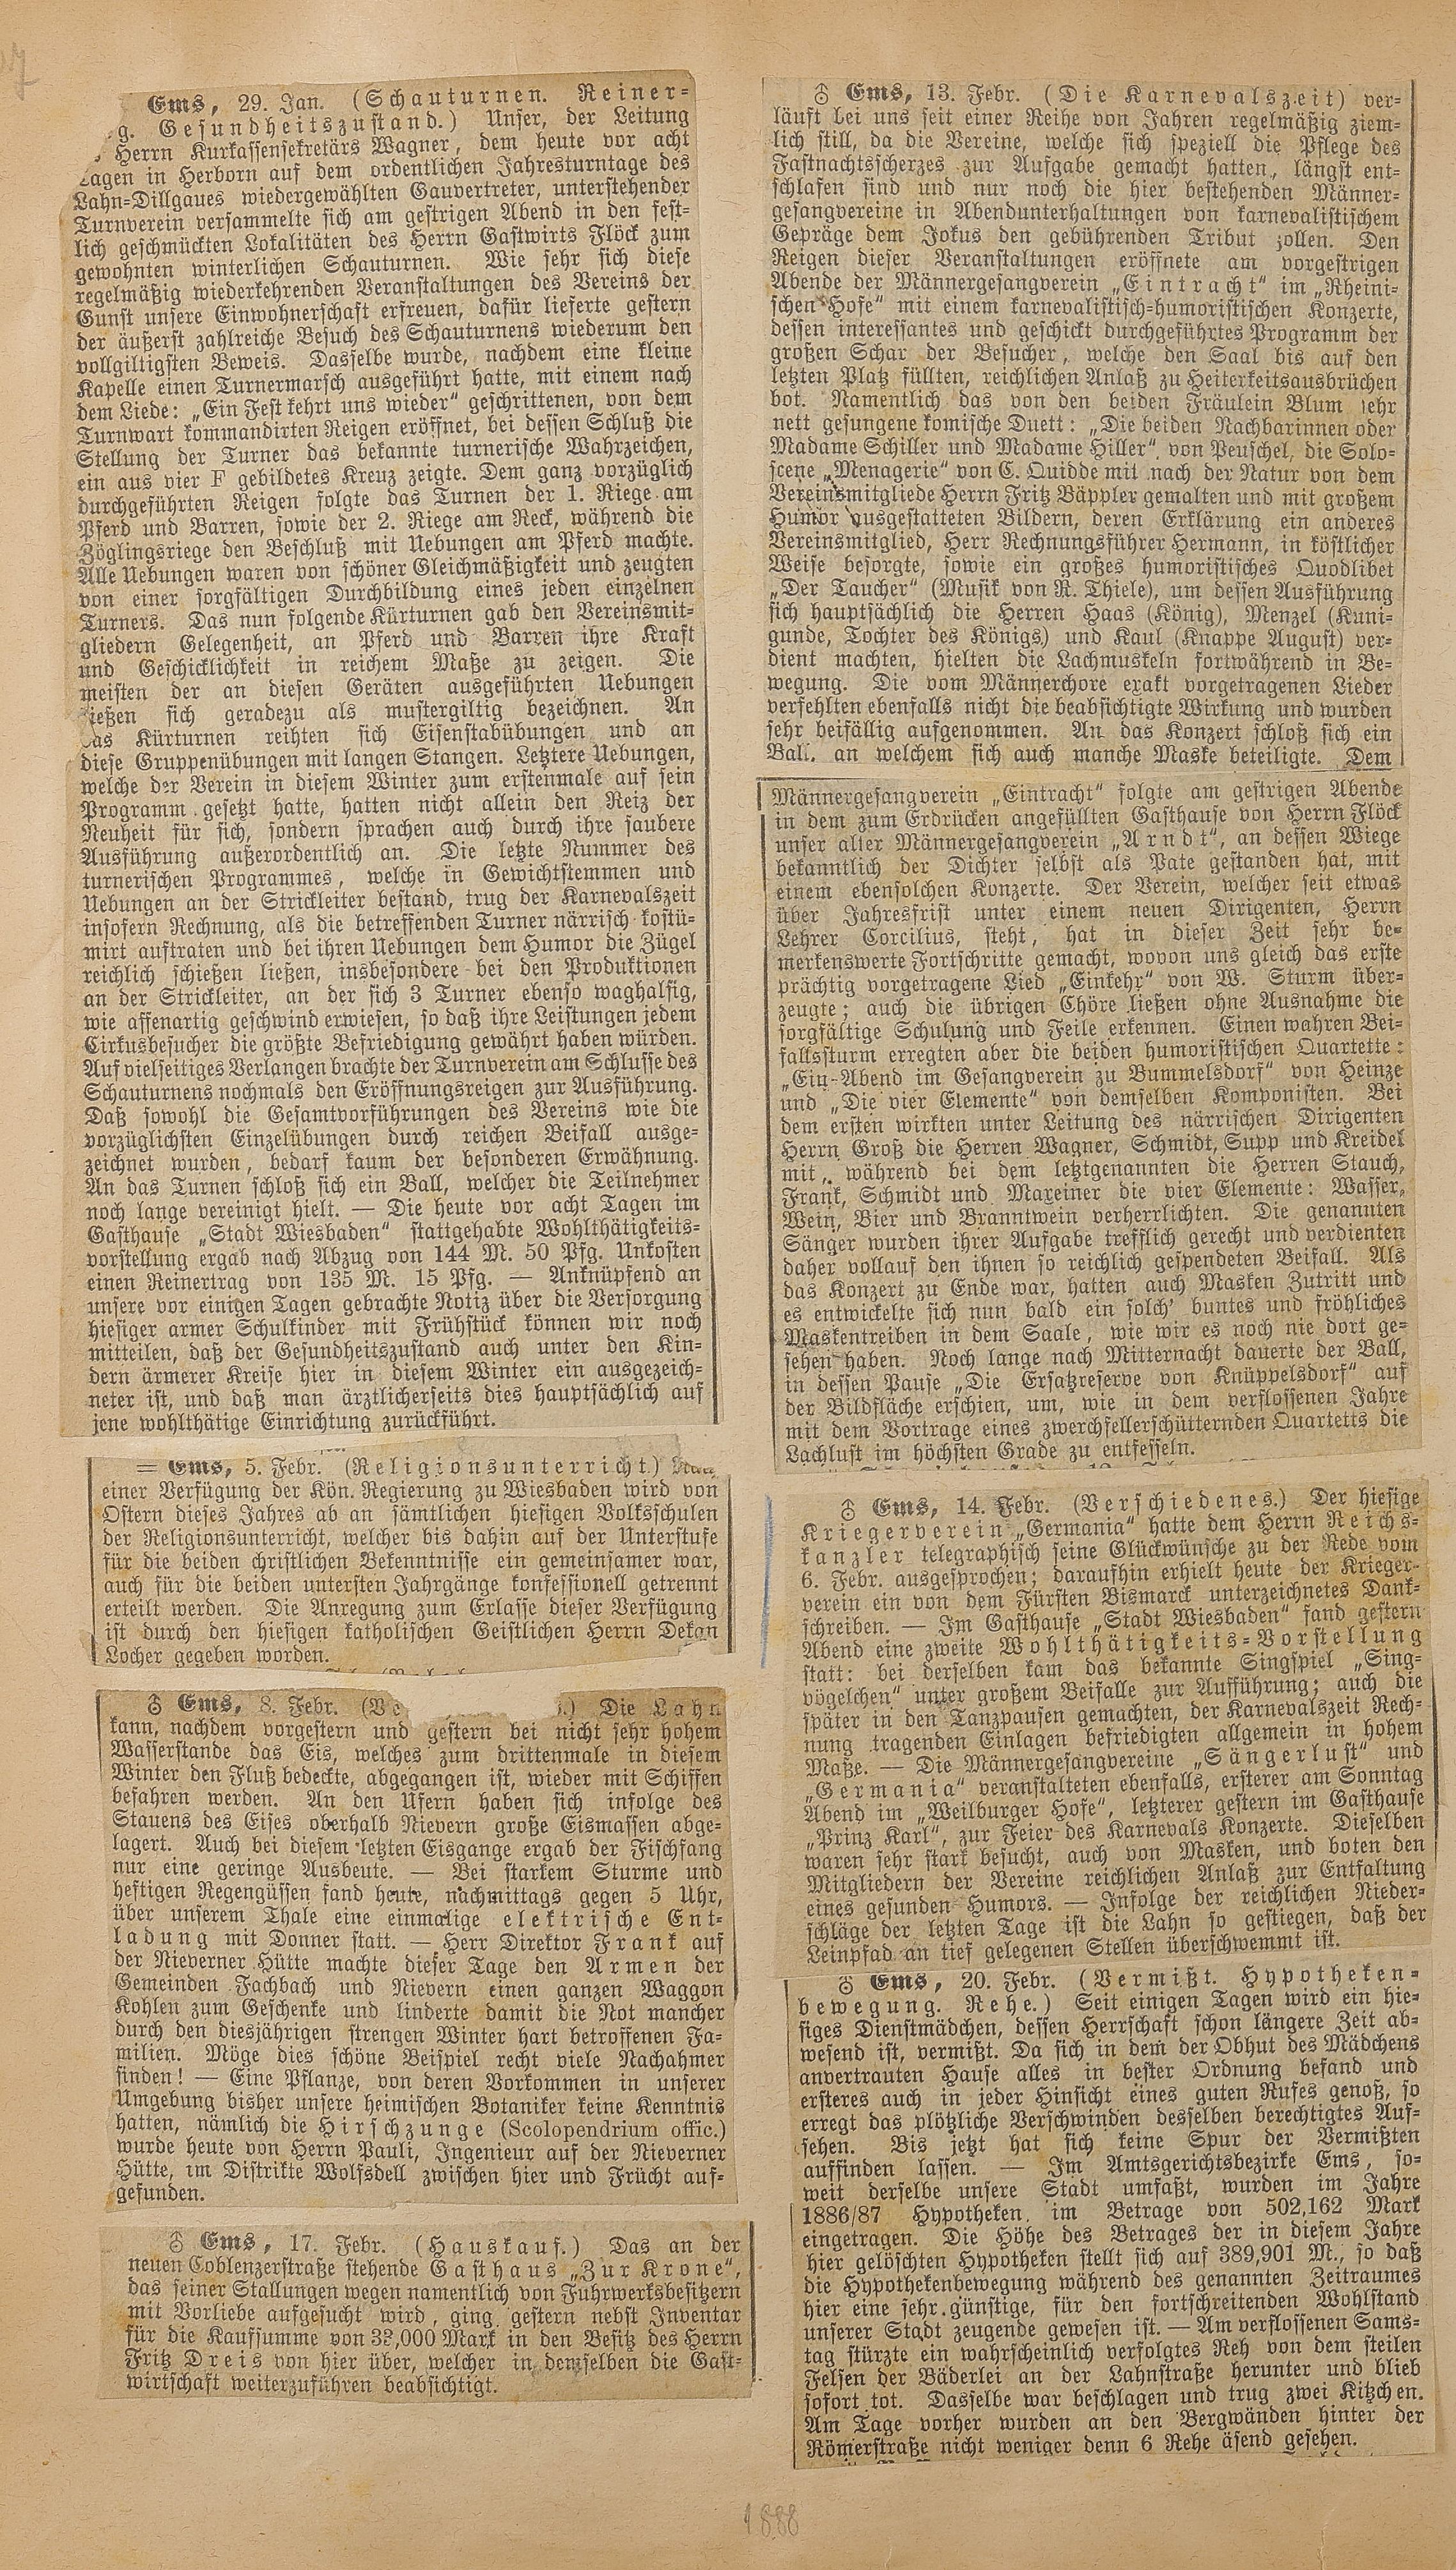 Ems, 29. Jan. (Schauturnen. Reiner-
g. Gesundheitszustand.) Unser, der Leitung
Herrn Kurkassensekretärs Wagner, dem heute vor acht
Tagen in Herborn auf dem ordentlichen Jahresturntage des
Lahn-Dillgaues wiedergewählten Gauvertreter, unterstehender
Turnverein versammelte sich am gestrigen Abend in den fest-
lich geschmückten Lokalitäten des Herrn Gastwirts Flöck zum
gewohnten winterlichen Schauturnen. Wie sehr sich diese
regelmäßig wiederkehrenden Veranstaltungen des Vereins der
Gunst unsere Einwohnerschaft erfreuen, dafür lieferte gestern
der äußerst zahlreiche Besuch des Schauturnens wiederum den
vollgiltigsten Beweis. Dasselbe wurde, nachdem eine kleine
Kapelle einen Turnermarsch ausgeführt hatte, mit einem nach
dem Liede: „Ein Fest kehrt uns wieder“ geschrittenen, von dem
Turnwart kommandirten Reigen eröffnet, bei dessen Schluß die
Stellung der Turner das bekannte turnerische Wahrzeichen,
ein aus vier F gebildetes Kreuz zeigte. Dem ganz vorzüglich
durchgeführten Reigen folgte das Turnen der 1. Riege am
Pferd und Barren, sowie der 2. Riege am Reck, während die
Zöglingsriege den Beschluß mit Uebungen am Pferd machte.
Alle Uebungen waren von schöner Gleichmäßigkeit und zeugten
von einer sorgfältigen Durchbildung eines jeden einzelnen
Turners. Das nun folgende Kürturnen gab den Vereinsmit-
gliedern Gelegenheit, an Pferd und Barren ihre Kraft
und Geschicklichkeit in reichem Maße zu zeigen. Die
meisten der an diesen Geräten ausgeführten Uebungen
ließen sich geradezu als mustergiltig bezeichnen. An
das Kürturnen reihten sich Eisenstabübungen und an
diese Gruppenübungen mit langen Stangen. Letztere Uebungen,
welche der Verein in diesem Winter zum erstenmale auf sein
Programm gesetzt hatte, hatten nicht allein den Reiz der
Neuheit für sich, sondern sprachen auch durch ihre saubere
Ausführung außerordentlich an. Die letzte Nummer des
turnerischen Programmes, welche in Gewichtstemmen und
Uebungen an der Strickleiter bestand, trug der Karnevalszeit
insofern Rechnung, als die betreffenden Turner närrisch kostü-
mirt auftraten und bei ihren Uebungen dem Humor die Zügel
reichlich schießen ließen, insbesondere bei den Produktionen
an der Strickleiter, an der sich 3 Turner ebenso waghalsig,
wie affenartig geschwind erwiesen, so daß ihre Leistungen jedem
Cirkusbesucher die größte Befriedigung gewährt haben würden.
Auf vielseitiges Verlangen brachte der Turnverein am Schlusse des
Schauturnens nochmals den Eröffnungsreigen zur Ausführung.
Daß sowohl die Gesamtvorführungen des Vereins wie die
vorzüglichsten Einzelübungen durch reichen Beifall ausge-
zeichnet wurden, bedarf kaum der besonderen Erwähnung.
An das Turnen schloß sich ein Ball, welcher die Teilnehmer
noch lange vereinigt hielt. — Die heute vor acht Tagen im
Gasthause „Stadt Wiesbaden“ stattgehabte Wohlthätigkeits-
vorstellung ergab nach Abzug von 144 M. 50 Pfg. Unkosten
einen Reinertrag von 135 M. 15 Pfg. — Anknüpfend an
unsere vor einigen Tagen gebrachte Notiz über die Versorgung
hiesiger armer Schulkinder mit Frühstück können wir noch
mitteilen, daß der Gesundheitszustand auch unter den Kin-
dern ärmerer Kreise hier in diesem Winter ein ausgezeich-
neter ist, und daß man ärztlicherseits dies hauptsächlich auf
jene wohlthätige Einrichtung zurückführt.
= Ems, 5. Febr. (Religionsunterricht.)
einer Verfügung der Kön. Regierung zu Wiesbaden wird von
Ostern dieses Jahres ab an sämtlichen hiesigen Volksschulen
der Religionsunterricht, welcher bis dahin auf der Unterstufe
für die beiden christlichen Bekenntnisse ein gemeinsamer war,
auch für die beiden untersten Jahrgänge konfessionell getrennt
erteilt werden. Die Anregung zum Erlasse dieser Verfügung
ist durch den hiesigen katholischen Geistlichen Herrn Dekan
Locher gegeben worden.
♁ Ems, 8. Febr. (Ve .) Die Lahn
kann, nachdem vorgestern und gestern bei nicht sehr hohem
Wasserstande das Eis, welches zum drittenmale in diesem
Winter den Fluß bedeckte, abgegangen ist, wieder mit Schiffen
befahren werden. An den Ufern haben sich infolge des
Stauens des Eises oberhalb Nievern große Eismassen abge-
lagert. Auch bei diesem letzten Eisgange ergab der Fischfang
nur eine geringe Ausbeute. — Bei starkem Sturme und
heftigen Regengüssen fand heute, nachmittags gegen 5 Uhr,
über unserem Thale eine einmalige elektrische Ent-
ladung mit Donner statt. — Herr Direktor Frank auf
der Nieverner Hütte machte dieser Tage den Armen der
Gemeinden Fachbach und Nievern einen ganzen Waggon
Kohlen zum Geschenke und linderte damit die Not mancher
durch den diesjährigen strengen Winter hart betroffenen Fa-
milien. Möge dies schöne Beispiel recht viele Nachahmer
finden! — Eine Pflanze, von deren Vorkommen in unserer
Umgebung bisher unsere heimischen Botaniker keine Kenntnis
hatten, nämlich die Hirschzunge (Scolopendrium offic.)
wurde heute von Herrn Pauli, Ingenieur auf der Nieverner
Hütte, im Distrikte Wolfsdell zwischen hier und Frücht auf-
gefunden.
♁ Ems, 17. Febr. (Hauskauf.) Das an der
neuen Coblenzerstraße stehende Gasthaus „Zur Krone“,
das seiner Stallungen wegen namentlich von Fuhrwerksbesitzern
mit Vorliebe aufgesucht wird, ging gestern nebst Inventar
für die Kaufsumme von Mark in den Besitz des Herrn
Fritz Dreis von hier über, welcher in demselben die Gast-
wirtschaft weiterzuführen beabsichtigt.
♁ Ems, 13. Febr. (Die Karnevalszeit) ver-
läuft bei uns seit einer Reihe von Jahren regelmäßig ziem-
lich still, da die Vereine, welche sich speziell die Pflege des
Fastnachtsscherzes zur Aufgabe gemacht hatten, längst ent-
schlafen sind und nur noch die hier bestehenden Männer-
gesangvereine in Abendunterhaltungen von karnevalistischem
Gepräge dem Jokus den gebührenden Tribut zollen. Den
Reigen dieser Veranstaltungen eröffnete am vorgestrigen
Abende der Männergesangverein „Eintracht“ im „Rheini-
schen Hofe“ mit einem karnevalistisch-humoristischen Konzerte,
dessen interessantes und geschickt durchgeführtes Programm der
großen Schar der Besucher, welche den Saal bis auf den
letzten Platz füllten, reichlichen Anlaß zu Heiterkeitsausbrüchen
bot. Namentlich das von den beiden Fräulein Blum sehr
nett gesungene komische Duett: „Die beiden Nachbarinnen oder
Madame Schiller und Madame Hiller“, von Peuschel, die Solo-
scene „Menagerie“ von C. Quidde mit nach der Natur von dem
Vereinsmitgliede Herrn Fritz Bäppler gemalten und mit großem
Humor ausgestatteten Bildern, deren Erklärung ein anderes
Vereinsmitglied, Herr Rechnungsführer Hermann, in köstlicher
Weise besorgte, sowie ein großes humoristisches Quodlibet
„Der Taucher“ (Musik von R. Thiele), um dessen Ausführung
sich hauptsächlich die Herren Haas (König), Menzel (Kuni-
gunde, Tochter des Königs) und Kaul (Knappe August) ver-
dient machten, hielten die Lachmuskeln fortwährend in Be-
wegung. Die vom Männerchore exakt vorgetragenen Lieder
verfehlten ebenfalls nicht die beabsichtigte Wirkung und wurden
sehr beifällig aufgenommen. An das Konzert schloß sich ein
Ball, an welchem sich auch manche Maske beteiligte. Dem
Männergesangverein „Eintracht“ folgte am gestrigen Abende
in dem zum Erdrücken angefüllten Gasthause von Herrn Flöck
unser alter Männergesangverein „Arndt“, an dessen Wiege
bekanntlich der Dichter selbst als Pate gestanden hat, mit
einem ebensolchen Konzerte. Der Verein, welcher seit etwas
über Jahresfrist unter einem neuen Dirigenten, Herrn
Lehrer Corcilius, steht, hat in dieser Zeit sehr be-
merkenswerte Fortschritte gemacht, wovon uns gleich das erste
prächtig vorgetragene Lied „Einkehr“ von W. Sturm über-
zeugte; auch die übrigen Chöre ließen ohne Ausnahme die
sorgfältige Schulung und Feile erkennen. Einen wahren Bei-
fallssturm erregten aber die beiden humoristischen Quartette:
„Ein Abend im Gesangverein zu Bummelsdorf“ von Heinze
und „Die vier Elemente“ von demselben Komponisten. Bei
dem ersten wirkten unter Leitung des närrischen Dirigenten
Herrn Groß die Herren Wagner, Schmidt, Supp und Kreidel
mit, während bei dem letztgenannten die Herren Stauch,
Frank, Schmidt und Maxeiner die vier Elemente: Wasser,
Wein, Bier und Branntwein verherrlichten. Die genannten
Sänger wurden ihrer Aufgabe trefflich gerecht und verdienten
daher vollauf den ihnen so reichlich gespendeten Beifall. Als
das Konzert zu Ende war, hatten auch Masken Zutritt und
es entwickelte sich nun bald ein solch' buntes und fröhliches
Maskentreiben in dem Saale, wie wir es noch nie dort ge-
sehen haben. Noch lange nach Mitternacht dauerte der Ball,
in dessen Pause „Die Ersatzreserve von Knüppelsdorf“ auf
der Bildfläche erschien, um, wie in dem verflossenen Jahre
mit dem Vortrage eines zwerchfellerschütternden Quartetts die
Lachlust im höchsten Grade zu entfesseln.
♁ Ems, 14. Febr. (Verschiedenes.) Der hiesige
Kriegerverein „Germania“ hatte dem Herrn Reichs-
kanzler telegraphisch seine Glückwünsche zu der Rede vom
6. Febr. ausgesprochen; daraufhin erhielt heute der Krieger-
verein ein von dem Fürsten Bismarck unterzeichnetes Dank-
schreiben. — Im Gasthause „Stadt Wiesbaden“ fand gestern
Abend eine zweite Wohlthätigkeits-Vorstellung
statt: bei derselben kam das bekannte Singspiel „Sing-
vögelchen“ unter großem Beifalle zur Aufführung; auch die
später in den Tanzpausen gemachten, der Karnevalszeit Rech-
nung tragenden Einlagen befriedigten allgemein in hohem
Maße. — Die Männergesangvereine „Sängerlust“ und
„Germania“ veranstalteten ebenfalls, ersterer am Sonntag
Abend im „Weilburger Hofe“, letzterer gestern im Gasthause
„Prinz Karl“, zur Feier des Karnevals Konzerte. Dieselben
waren sehr stark besucht, auch von Masken, und boten den
Mitgliedern der Vereine reichlichen Anlaß zur Entfaltung
eines gesunden Humors. — Infolge der reichlichen Nieder-
schläge der letzten Tage ist die Lahn so gestiegen, daß der
Leinpfad an tief gelegenen Stellen überschwemmt ist.
♁ Ems, 20. Febr. (Vermißt. Hypotheken-
bewegung. Rehe.) Seit einigen Tagen wird ein hie-
siges Dienstmädchen, dessen Herrschaft schon längere Zeit ab-
wesend ist, vermißt. Da sich in dem der Obhut des Mädchens
anvertrauten Hause alles in bester Ordnung befand und
ersteres auch in jeder Hinsicht eines guten Rufes genoß, so
erregt das plötzliche Verschwinden desselben berechtigtes Auf-
sehen. Bis jetzt hat sich keine Spur der Vermißten
auffinden lassen. — Im Amtsgerichtsbezirke Ems, so-
weit derselbe unsere Stadt umfaßt, wurden im Jahre
1886/87 Hypotheken im Betrage von 502,162 Mark
eingetragen. Die Höhe des Betrages der in diesem Jahre
hier gelöschten Hypotheken stellt sich auf 389,901 M., so daß
die Hypothekenbewegung während des genannten Zeitraumes
hier eine sehr günstige, für den fortschreitenden Wohlstand
unserer Stadt zeugende gewesen ist. — Am verflossenen Sams-
tag stürzte ein wahrscheinlich verfolgtes Reh von dem steilen
Felsen der Bäderlei an der Lahnstraße herunter und blieb
sofort tot. Dasselbe war beschlagen und trug zwei Kitzchen.
Am Tage vorher wurden an den Bergwänden hinter der
Römerstraße nicht weniger denn 6 Rehe äsend gesehen.
1888